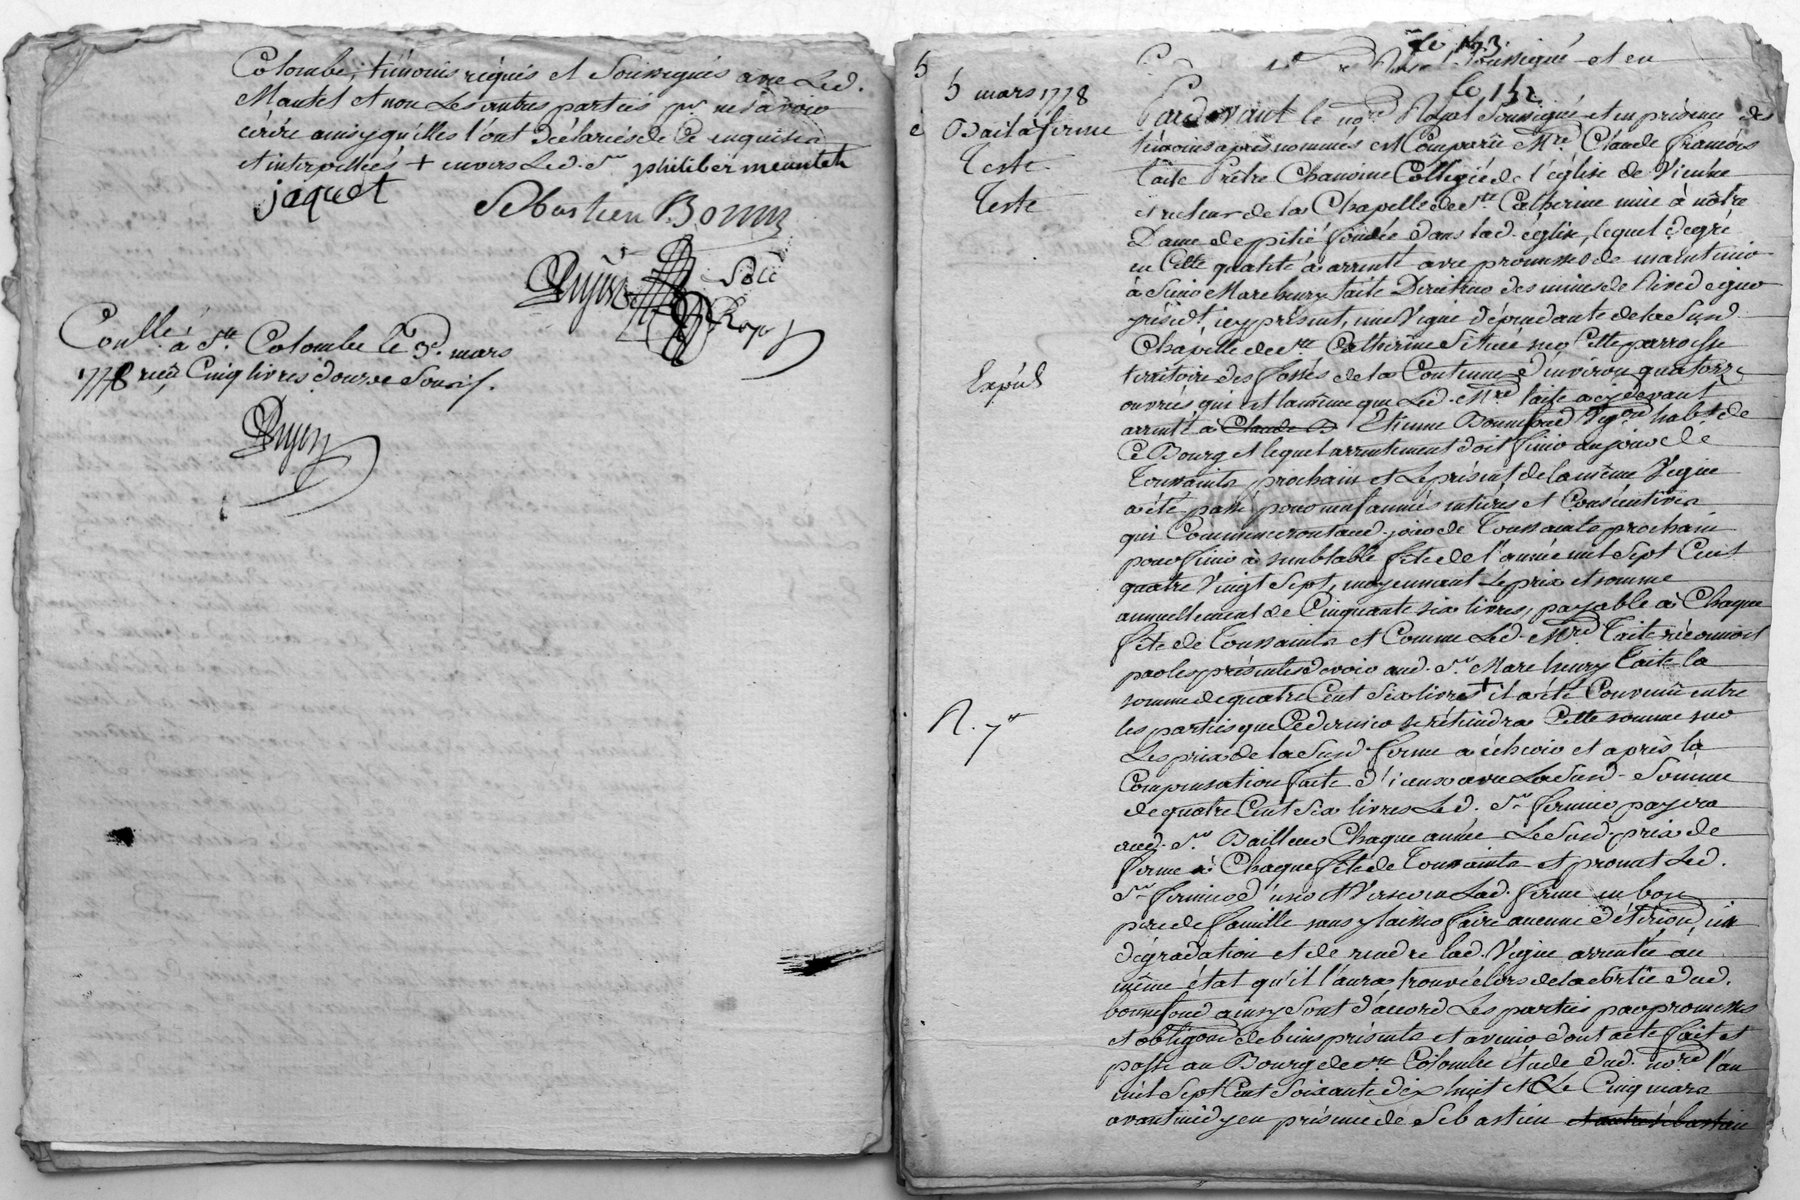 Colombe, témoins réquis et Soussignés avec Led.
Mantel et non Les autres parties pr. ne savoir
écrire ainsy qu'elles l'ont déclarés de ce enquises
et interpellées + envers Led. Sr. philiber meuntelt
jaquet
Sebastien Bonnin
Dujon
Rage
Conllé à Ste Colombe le 3e. mars
1778 reçu Cinq livres douze Sous
Dujon
fo 153
Soussigné et en
fo 152
5
5 mars 1778
Bail à ferme
Teste
Teste
Expéd
R. 7s
Pardevant le nore Royal Soussigné et en présence des
témoins après nommés est Comparû Mre Claude françois
Taite Prêtre Chanoine Collegié de l'église de Vienne
et recteur de la Chapelle de Ste Catherine unie à nôtre
Dame de pitié fondée dans lad. église, lequel de gré
en Cette qualité à arrenté avec promesses de maintenir
à Sieur Marc henry Taite Directeur des mines de
icy présent, une Vigne dépendante de la Susd.
Chapelle de Ste Catherine Située sur Cette parroisse
territoire des fossés de la Contenue d'environ quatorze
ouvrées qui est la même que Led. Mre Taite a cy devant
arrenté à Claude B Etienne Bonnefond Vigon habt de
Ce Bourg et lequel arrentement doit finir au jour de
Toussaints prochain et Le présent de la même Vigne
a été passé pour neuf années entières et Consécutives
qui Commenceront aud. jour de Toussaints prochain
pour finir à semblable fête de l'année mil Sept Cent
quatre Vingt Sept, moyennant Le prix et somme
annuellement de Cinquante six livres, payable à Chaque
fête de Toussaints et Comme Led. Mre Taite réconnoit
par les présentes devoir aud. Sr. Marc henry Taite la
somme de quatre Cent Six livres + il a été Convenû entre
les parties que Ce dernier se rétiendra Cette somme sur
Les prix de la Susd. ferme à échoir et après la
Compensation faite d'iceux avec La Susd. Somme
de quatre Cent Six livres Led. Sr. fermier payera
aud. Sr. Bailleur Chaque année Le Susd. prix de
ferme à Chaque fête de Toussaints et promet Led.
Sr. fermier d'user et Verser en Lad. ferme en bon
père de famille sans y laisser faire aucune détérioron ny
dégradation et de rendre lad. Vigne arrentée au
même état qu'il l'aura trouvé lors de la sortie dud.
bonnefond ainsy Sont d'accord Les parties par promesses
et obligons de biens présents et avenir dont acte fait et
passé au Bourg de Ste Colombe étude dud. nore l'an
mil Sept Cent Soixante dix huit et Le Cinq mars
avant midy en présence de Sebastien et autre sébastien